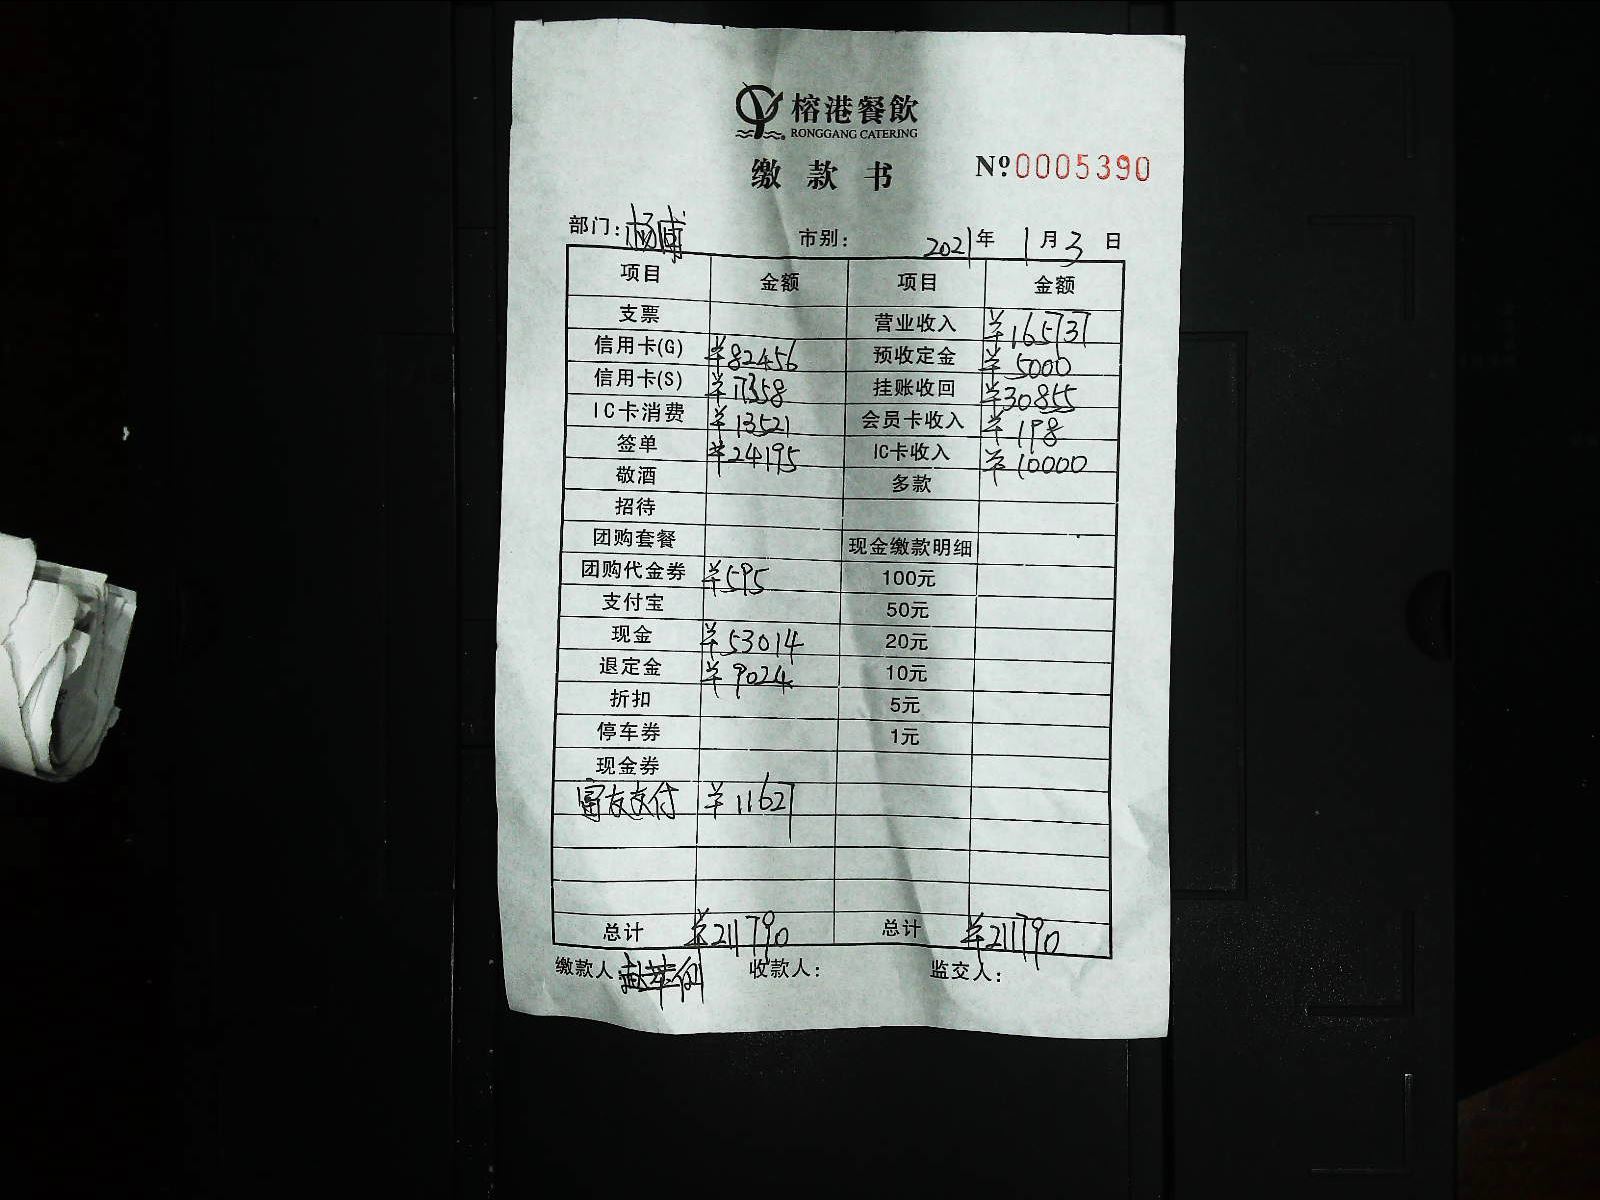 榕港餐飲
RONGGANG CATERING
缴款书 Nº0005390
部门: 市别: 2021年1月3日
项目 金额 项目 金额
支票 营业收入 ¥165737
信用卡(G) ¥82456 预收定金 ¥5000
信用卡(S) ¥17358 挂账收回 ¥30855
IC卡消费 ¥13521 会员卡收入 ¥198
签单 ¥24195 IC卡收入 ¥10000
敬酒 多款
招待
团购套餐 现金缴款明细
团购代金券 ¥595 100元
支付宝 50元
现金 ¥53014 20元
退定金 ¥9024 10元
折扣 5元
停车券 1元
现金券
富友支付 ¥11627
总计 ¥211790 总计 ¥211790
缴款人: 收款人: 监交人: